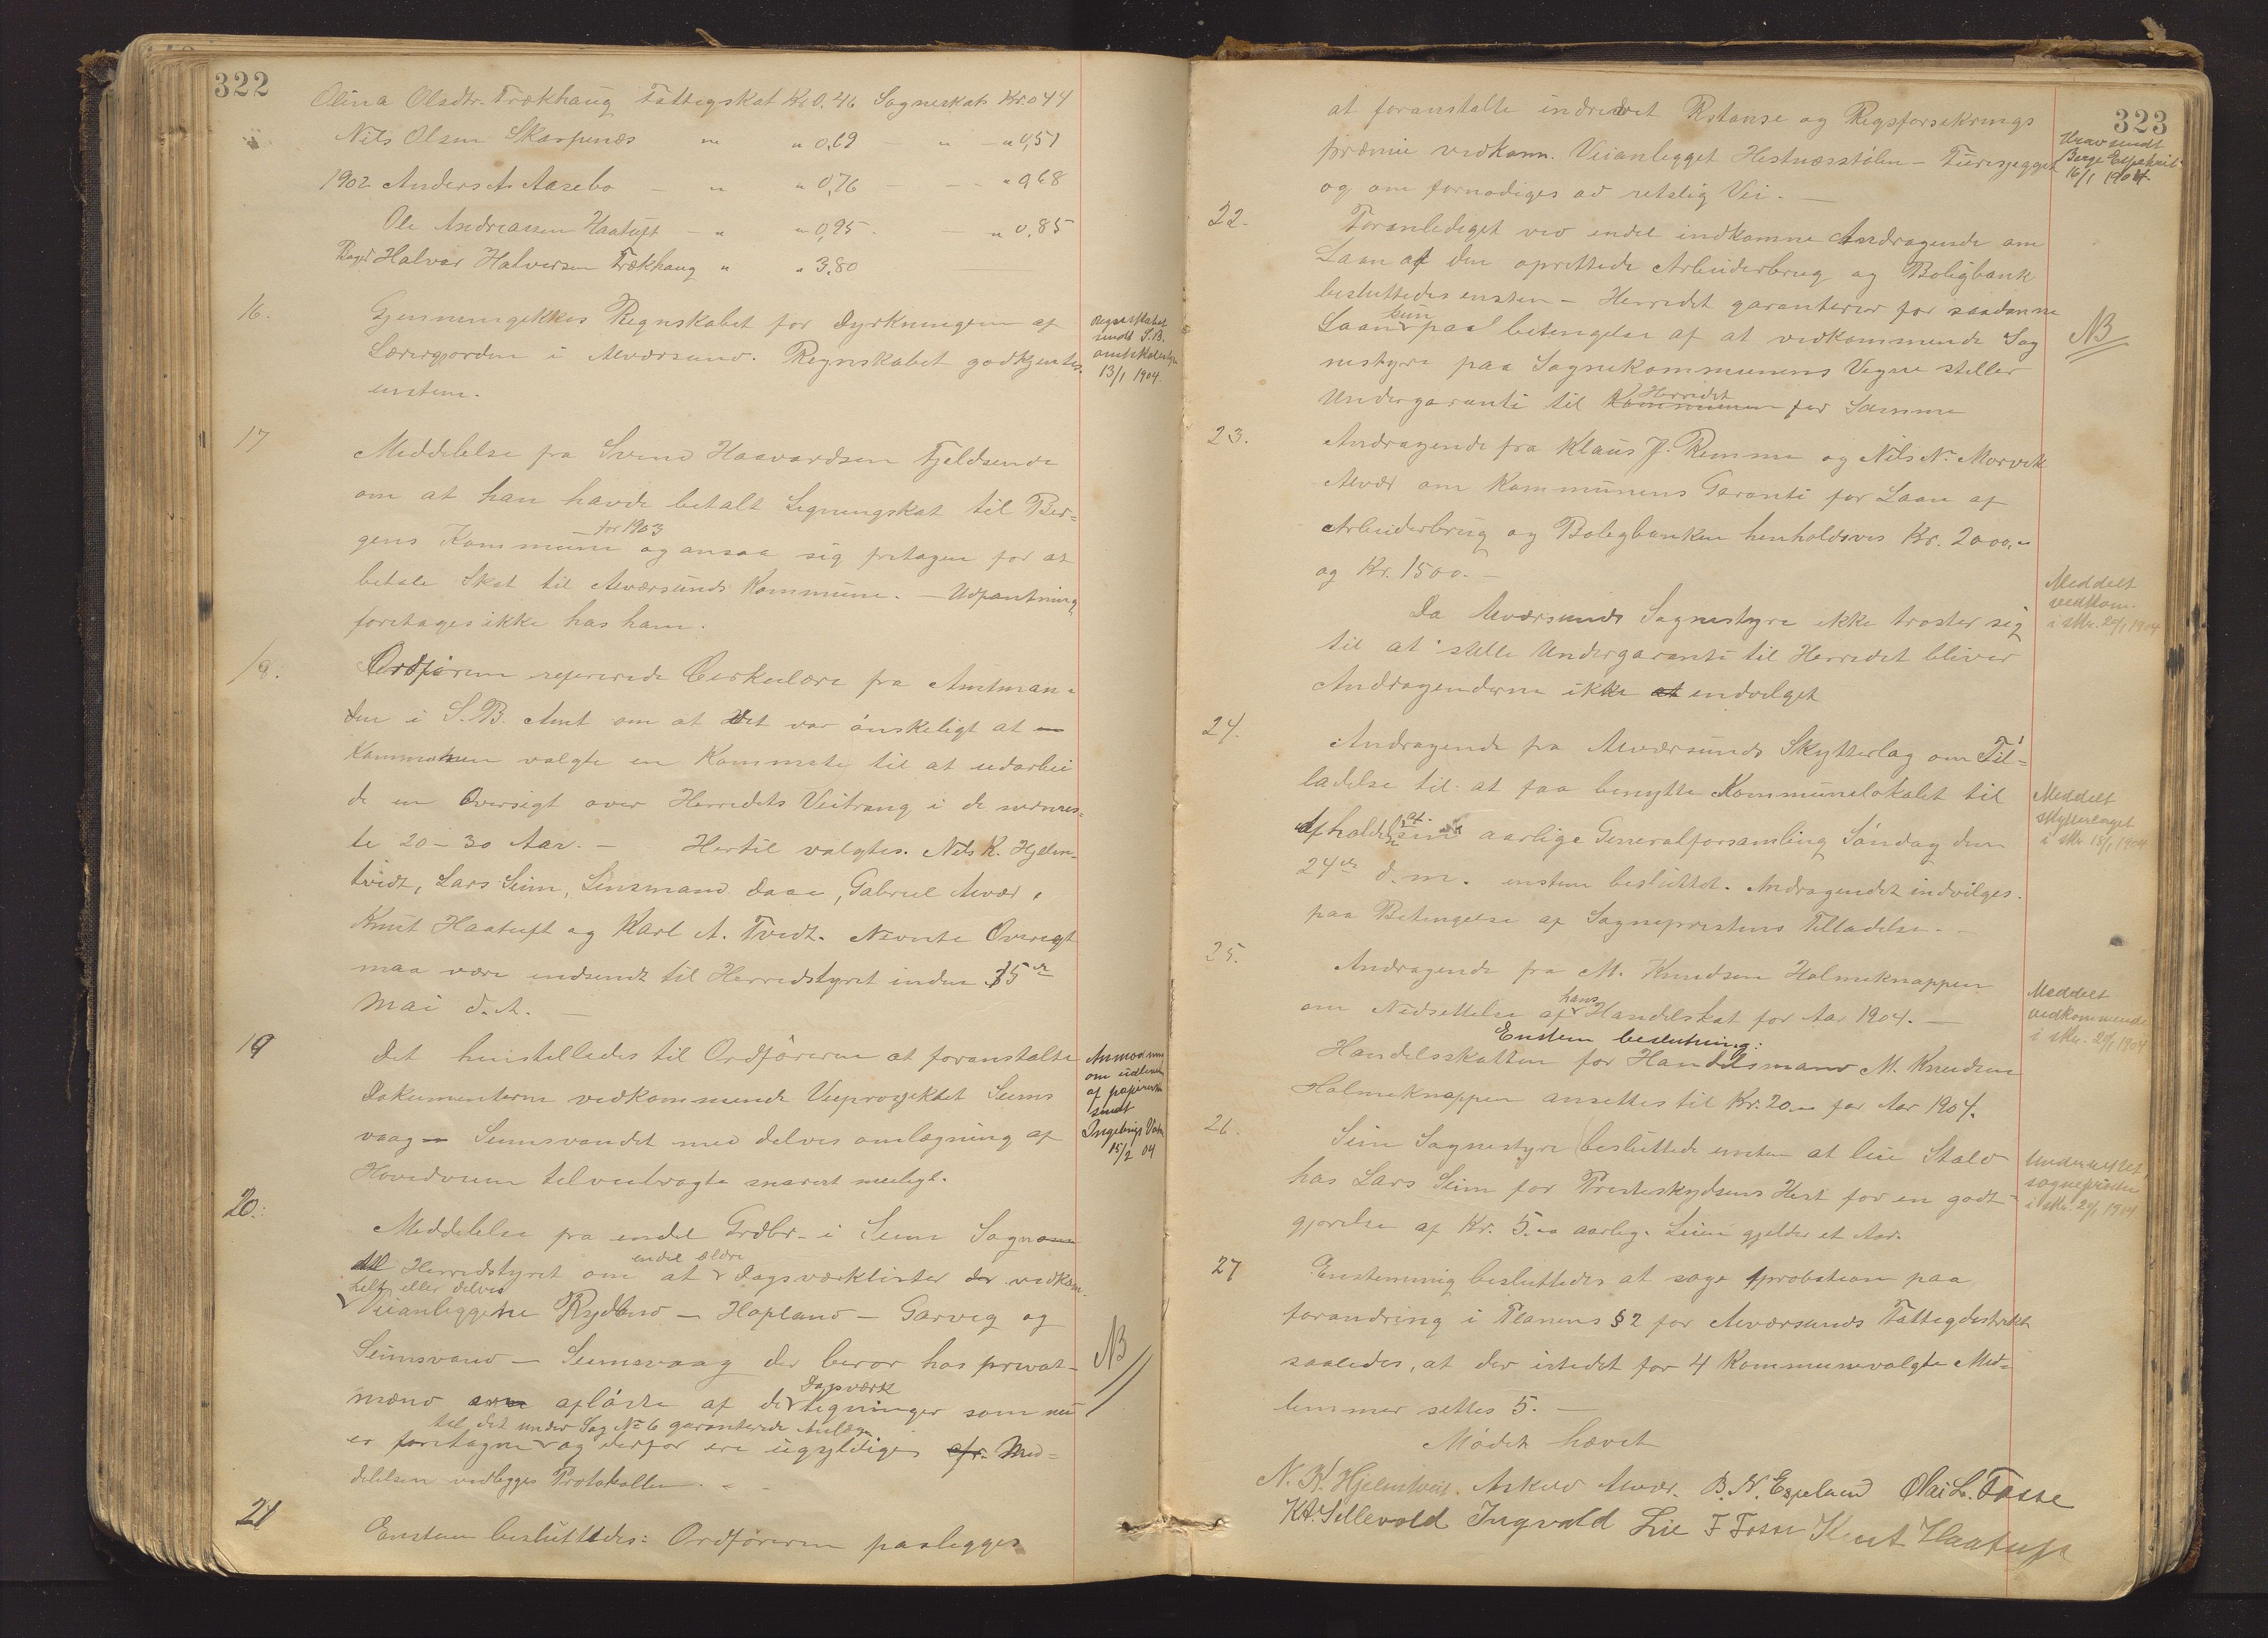 322
Olina Olsdtr. Trækhaug Fattigskat Kr 0,46 Sogneskat Kr. 0 44
Nils Olsen Skarpenæs " " 0,69 - " - " 0,51
1902 Anders As Aasebo - " " 0,76 - - - " 0,68
Ole Andreassen Haatuft - " " 0,95 - - " 0,85
Halvar Halversen Trækhaug " " 3,80
16. Gjennemgikkes Regnskabet for Dyrkningen af
Lærerjorden i Alværsund. Regnskabet godkjentes
enstem.
Regnskabet
sendt S.B.
amtsskolestyre
13/1 1904.
17 Meddelelse fra Svend Haavardsen Fjeldsende
om at han havde betalt Ligningskat til Ber=
gens Kommune for 1903 og ansaa sig fritagen for at
betale Skat til Alværsunds Kommune. - Udpantning
foretages ikke hos ham.
18. Ordføreren refererede Cirkulære fra Amtman=
den i S. B. Amt om at det var ønskeligt at
Kommunen valgte en Kommite til at udarbei
de en Oversigt over Herredets Veitrang i de nærmes=
te 20 - 30 Aar. - Hertil valgtes. Nils K. Hjelm-
tvedt, Lars Seim, Lensmand Daae, Gabriel Alvær,
Knut Haatuft og Karl A. Tvedt. Nævnte Oversigt
maa være indsendt til Herredstyret inden 15de
Mai d. A. -
19 Det henstilledes til Ordføreren at foranstalte
Dokumenterne vedkommende Veiprosjektet Seims
vaag - Seimsvandet med delvis omlægning af
Hovedveien tilveiebragte snarest muligt.
Anmodning
om udlevering
af papirerne
sendt
Ingebrigt
15/2 04
20. Meddelelse fra endel Grdbr. i Seim Sogn
til Herredstyret om at endel ældre Dagsværklister vedkom.
helt eller delvis
Veianleggene Rydland - Hopland - Garveg og
Seimsvand - Seimsvaag der beror hos privat-
mænd afløste af de Dagsværk tegninger som nu
til det under Sag No 6 garanterede Anlæg
er foretagne og derfor ere ugyldige. Med=
delelsen vedlegges Protokollen. -
NB
21 Enstem besluttedes: Ordføreren paalegges
323
at foranstalte inddrevet Restanse og Rigsforsikrings
præmie vedkom. Veianlegget Hestnesstølen - Fureskjegget
og om fornødiges ad retslig Vei. -
Krav sendt
Berge Espetveit
16/1 1904.
22. Foranlediget ved endel indkomne Andragende om
Laan af den oprettede Arbeiderbrug og Boligbank
besluttedes enstem - Herredet garanterer for saadanne
Laan kun paa betingelse af at vedkommende Sog
nestyre paa Sognekommunens Vegne stiller
Undergaranti til Kommunen Herredet for Samme
NB
23. Andragende fra Klaus J. Remme og Nils N. Morvik
Alvær om Kommunens Garanti for Laan af
Arbeiderbrug og Boligbanken henholdsvis Kr. 2000,-
og Kr. 1500.-
Da Alværsunds Sognestyre ikke trøster sig
til at stille Undergaranti til Herredet bliver
Andragenderne ikke at indvilget
Meddelt
vedkom.
i skr. 20/1 1904
24. Andragende fra Alværsunds Skytterlag om Til=
ladelse til at faa benytte Kommunelokalet til
Afholdelse af sin aarlige Generalforsamling Søndag den
24de d. m. enstem besluttet. Andragendet indvilges.
paa Betingelse af Sogneprestens Tilladelse. -
Meddelt
Skytterlaget
i skr 18/1 1904
25. Andragende fra M. Knudsen Holmeknappen
om Nedsettelse af hans Handelskat for Aar 1904. -
Enstem beslutning:
Handelsskatten for Handelsmand M. Knudsen
Holmeknappen ansettes til Kr. 20.- for Aar 1904.
Meddelt
vedkommende
i skr. 20/1 1904
26. Seim Sognestyre besluttede enstem at leie Stald
hos Lars Seim for Presteskydsens Hest for en godt-
gjørelse af Kr. 5.- aarlig. Leien gjelder et Aar.
Underrettet
sognepresten
i skr. 20/1 1904
27 Enstemmig besluttedes at søge Aprobation paa
forandring i Planens § 2 for Alværsunds Fattigdistrikt
saaledes, at der istedet for 4 Kommunevalgte Med=
lemmer settes 5. -
Mødet hævet
N. K. Hjelmtveit. Askild Alvær. B. N. Espeland Olai L. Fosse
K A. Sellevold Ingvald Lie F Fosse Knut Haatuft